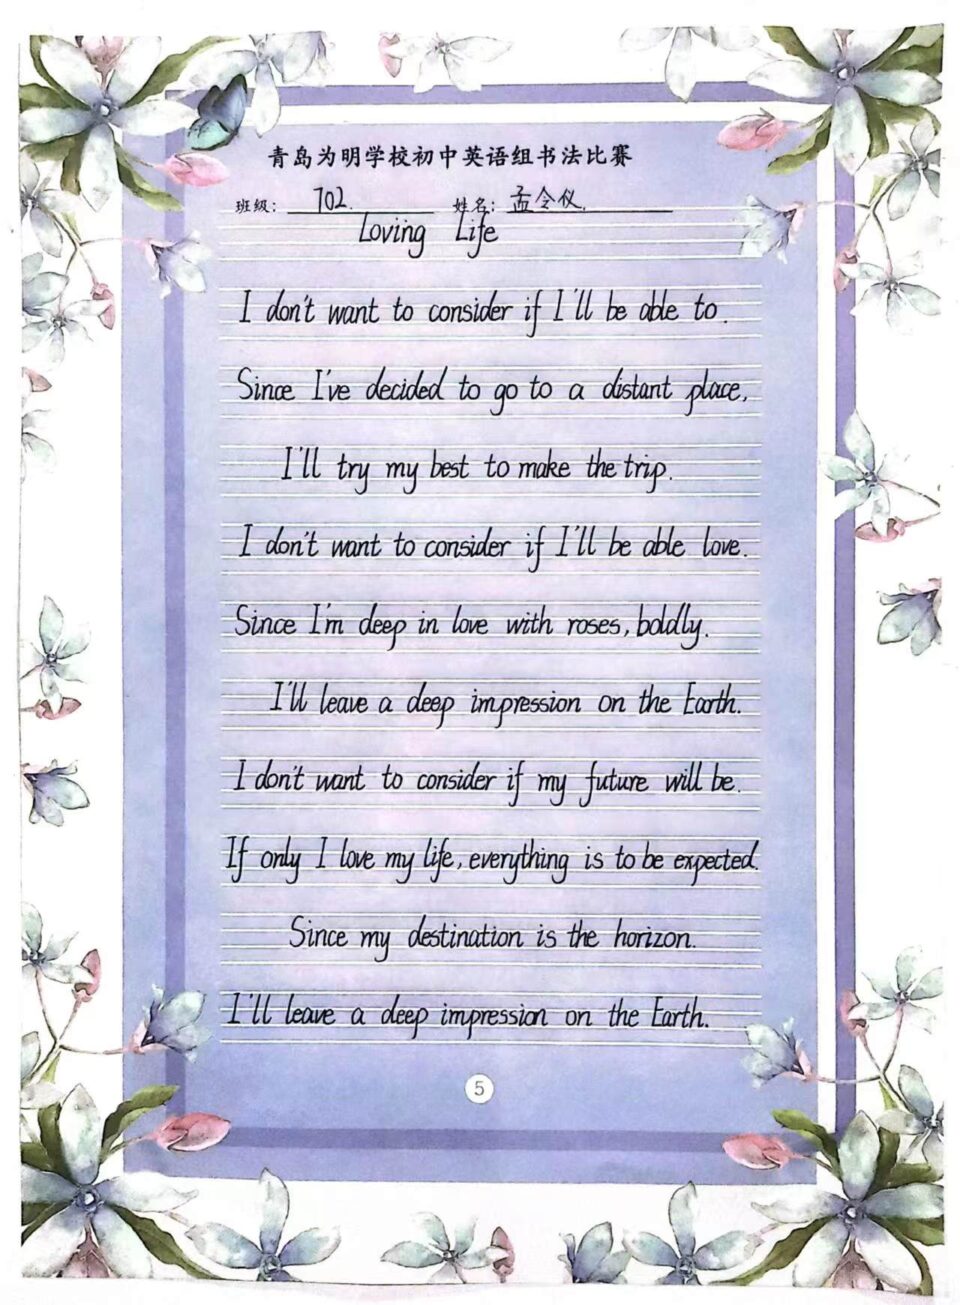 青岛为明学校初中英语组书法比赛
班级: 702. 姓名: 孟令仪.
Loving Life
I don't want to consider if I'll be able to.
Since I've decided to go to a distant place,
I'll try my best to make the trip.
I don't want to consider if I'll be able love.
Since I'm deep in love with roses, boldly.
I'll leave a deep impression on the Earth.
I don't want to consider if my future will be.
If only I love my life, everything is to be expected.
Since my destination is the horizon.
I'll leave a deep impression on the Earth.
5